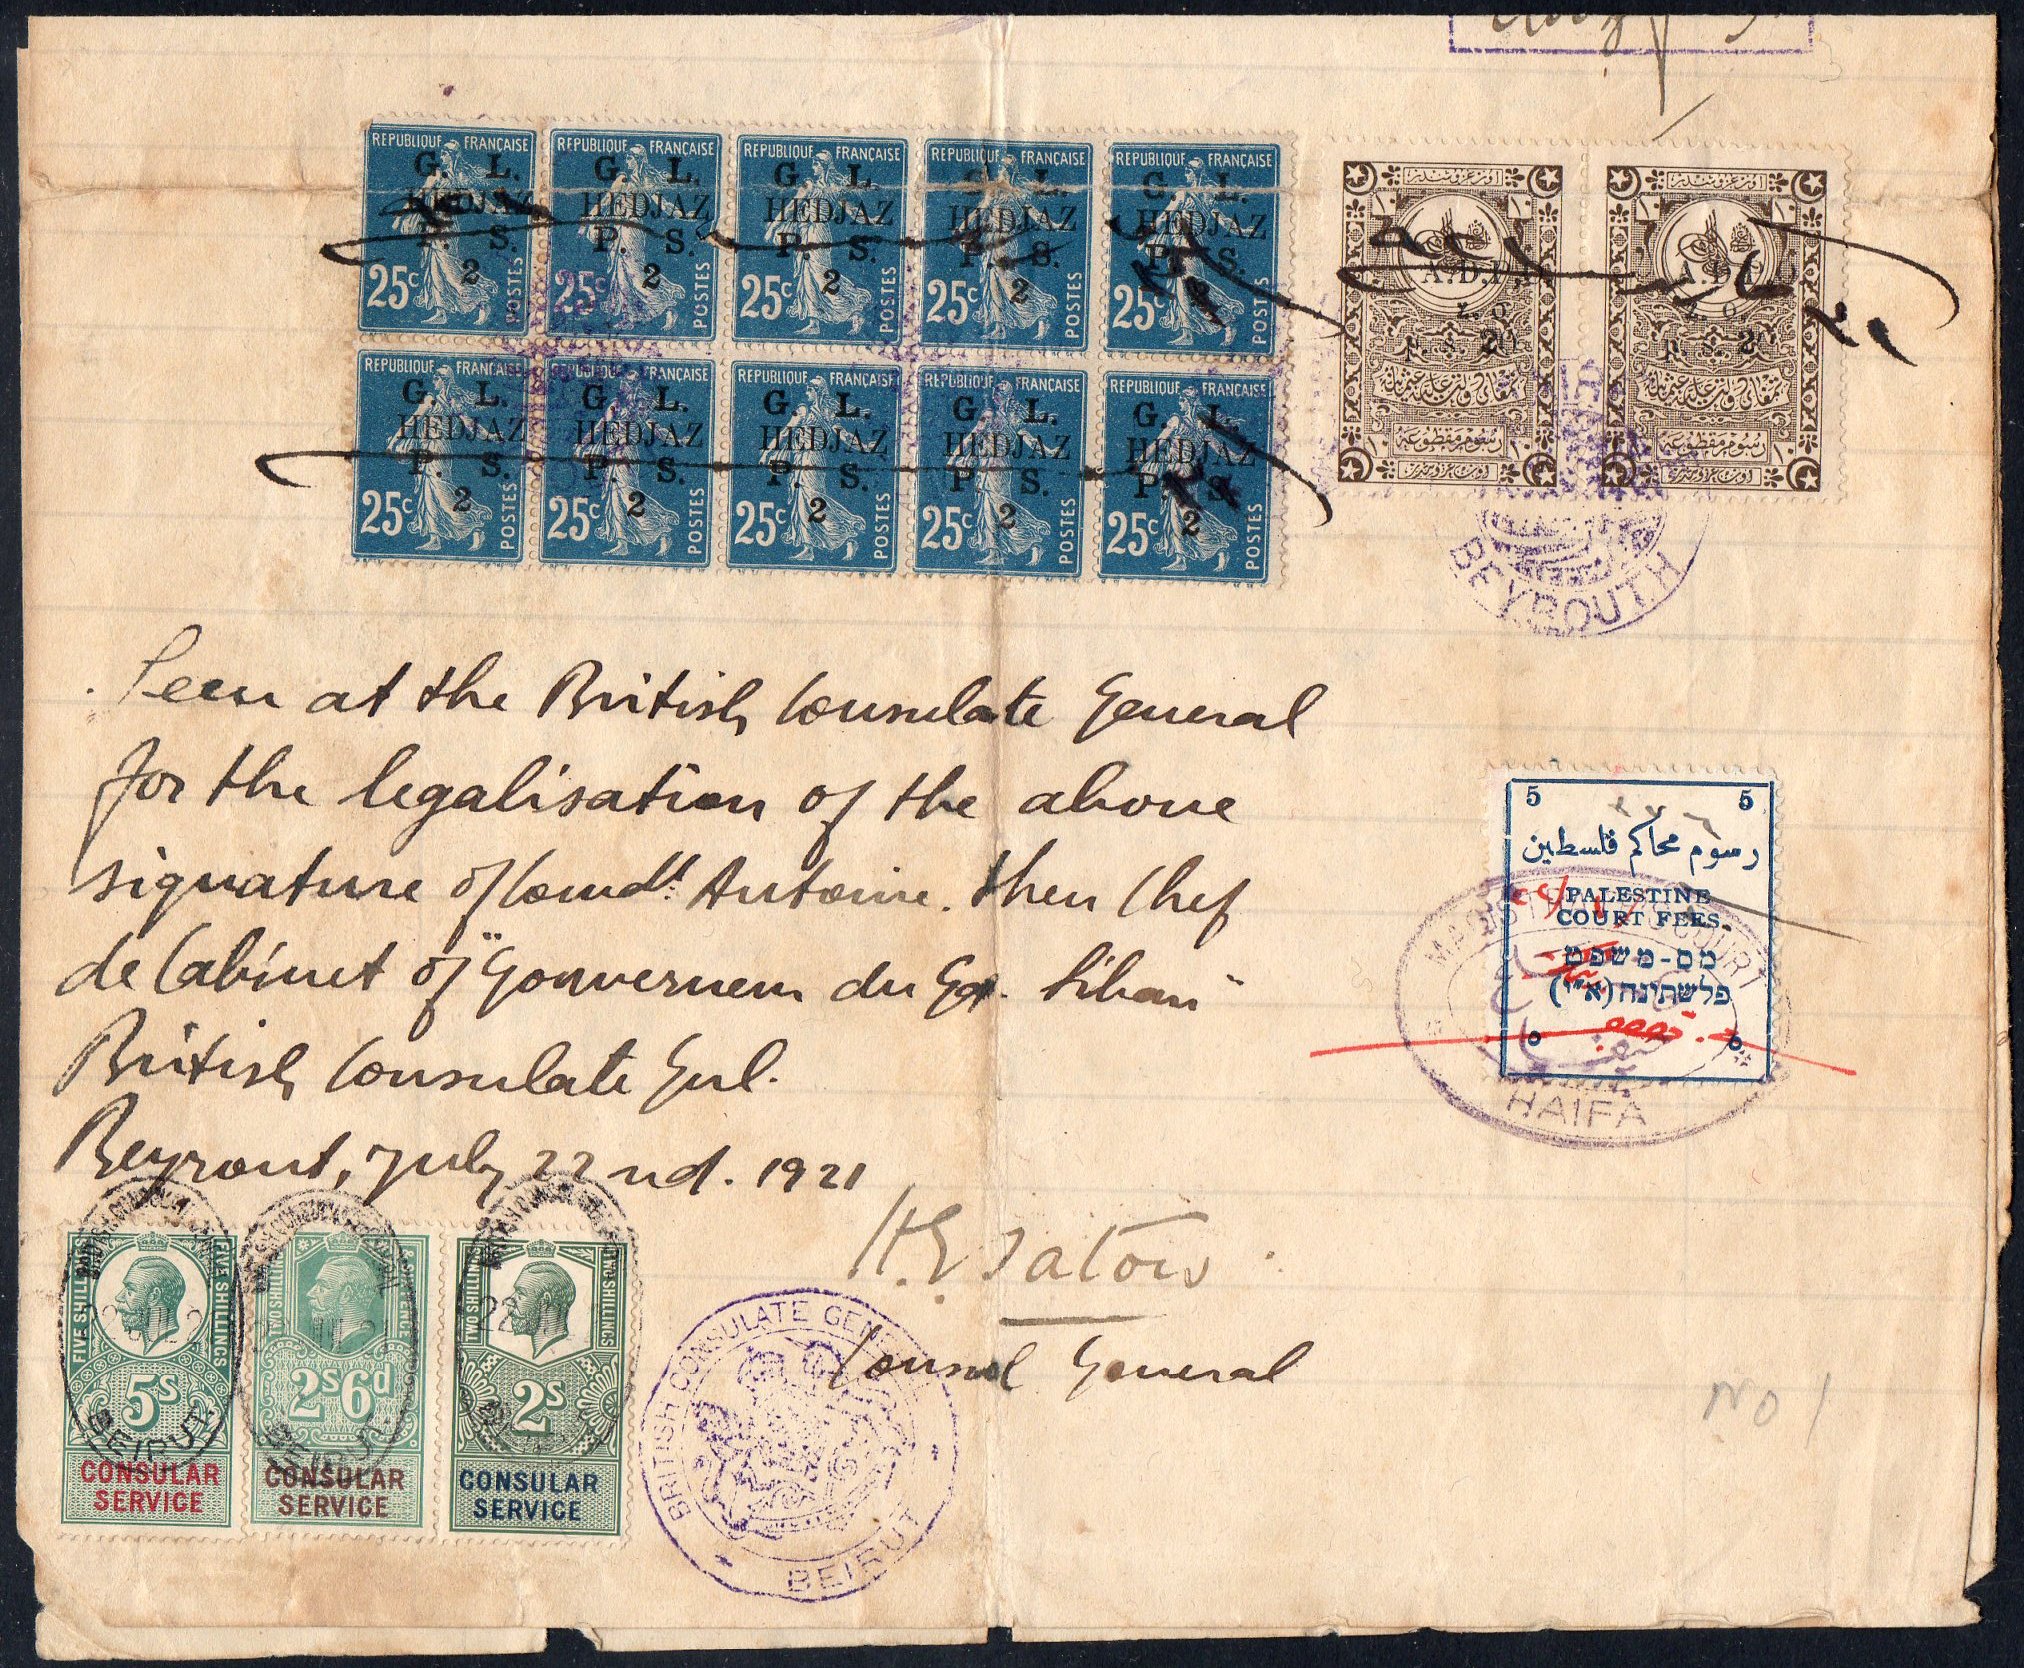 REPUBLIQUE FRANÇAISE REPUBLIQUE FRANÇAISE REPUBLIQUE FRANÇAISE REPUBLIQUE FRANÇAISE REPUBLIQUE FRANÇAISE
G. L. G. L. G. L. G. L. G. L.
HEDJAZ HEDJAZ HEDJAZ HEDJAZ HEDJAZ
P. S. P. S. P. S. P. S. P. S.
2 2 2 2 2
25c 25c 25c 25c 25c
POSTES POSTES POSTES POSTES POSTES
REPUBLIQUE FRANÇAISE REPUBLIQUE FRANÇAISE REPUBLIQUE FRANÇAISE REPUBLIQUE FRANÇAISE REPUBLIQUE FRANÇAISE
G. L. G. L. G. L. G. L. G. L.
HEDJAZ HEDJAZ HEDJAZ HEDJAZ HEDJAZ
P. S. P. S. P. S. P. S. P. S.
2 2 2 2 2
25c 25c 25c 25c 25c
POSTES POSTES POSTES POSTES POSTES
١٠ ١٠ ١٠ ١٠
رسوم مقطوعه رسوم مقطوعه
١٠ ١٠ ١٠ ١٠
BEYROUTH
Seen at the British Consulate General
for the legalisation of the above
signature of Comdt. Antoine. then Chef
de Cabinet of "Gouvernem du Gd. Liban"
British Consulate Gnl.
Beyrout, July 22nd. 1921
H.E. Satow
Consul General
5 5
رسوم محاكم فلسطين
PALESTINE
COURT FEES
מס-משפט
פלשתינה (א״י)
٥ ٥
MAGISTRATE'S COURT
HAIFA
FIVE SHILLINGS FIVE SHILLINGS
5s
CONSULAR
SERVICE
BEIRUT
TWO SHILLINGS & SIX PENCE
2s6d
CONSULAR
SERVICE
BEIRUT
TWO SHILLINGS TWO SHILLINGS
2s
CONSULAR
SERVICE
BRITISH CONSULATE GENERAL
BEIRUT
No 1